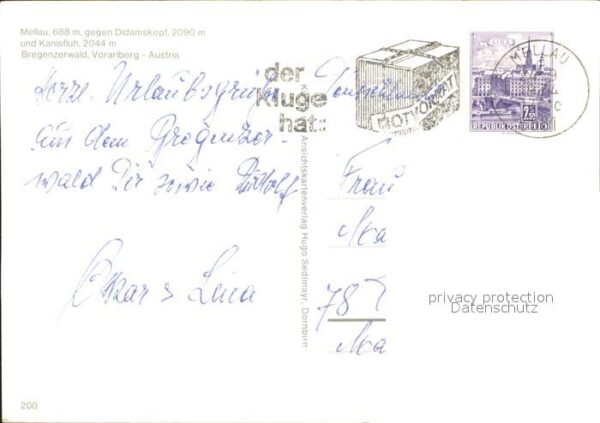 Mellau, 688 m, gegen Didamskopf, 2090 m
und Kanisfluh, 2044 m
Bregenzerwald, Vorarlberg - Austria
der
Kluge
hat::
NOTVORRAT
MELLAU
2.50
REPUBLIK ÖSTERREICH
Herzl. Urlaubsgrüße
aus dem Bregenzer-
wald Dir sowie
Oskar & Lina
Ansichtskartenverlag Hugo Sedlmayr, Dornbirn
Frau
78
privacy protection
Datenschutz
200